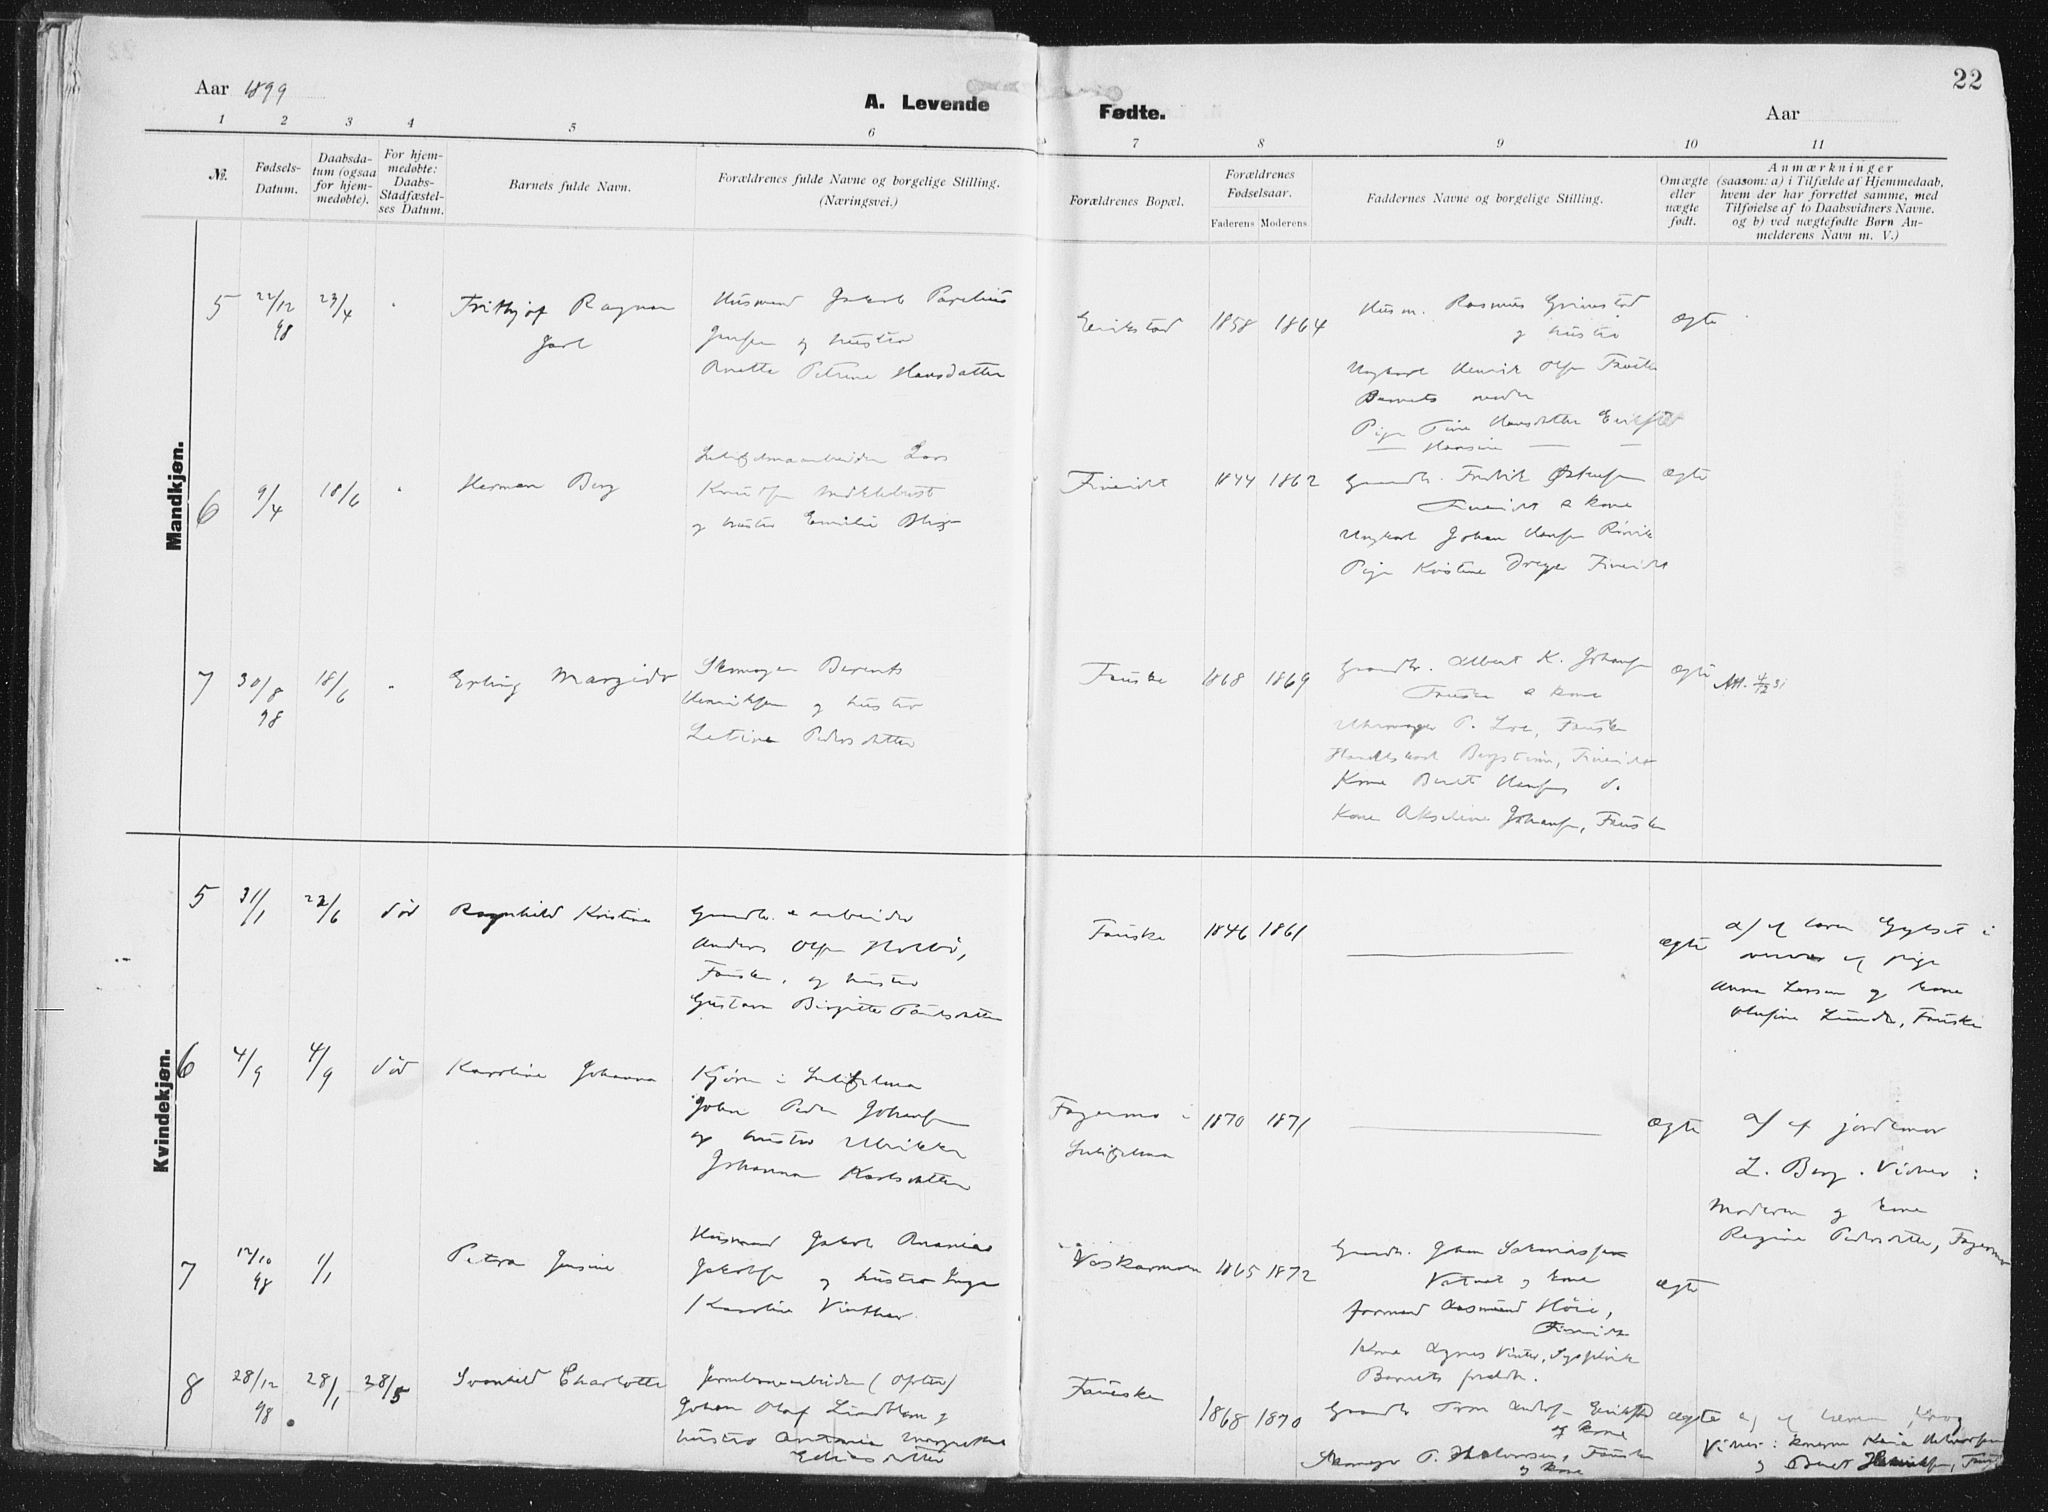 22
Aar 1899
A. Levende Fødte.
Aar
1 2 3 4 5 6 7 8 9 10 11
№.
Fødsels-
Datum.
Daabsda-
tum (ogsaa
for hjem-
medøbte).
For hjem-
medøbte:
Daabs-
Stadfæstel-
ses Datum.
Barnets fulde Navn.
Forældrenes fulde Navne og borgelige Stilling.
(Næringsvei.)
Forældrenes Bopæl.
Forældrenes
Fødselsaar.
Faderens Moderens
Faddernes Navne og borgelige Stilling.
Om ægte
eller
uægte
født.
Anmærkninger
(saasom: a) i Tilfælde af Hjemmedaab,
hvem der har forrettet samme, med
Tilføielse af to Daabsvidners Navne.
og b) ved uægtefødte Børn An-
melderens Navn m. V.)
Mandkjøn.
5 22/12 98 23/4
Frithjof Ragnar
Jarl
Husmand Jakob Parelius
Jensen og hustru
Anette Petrine Hansdatter
Erikstad 1858 1864
Husm. Rasmus Grimstad
og hustru
Ungkarl Henrik Olsen Fauske
Barnets moder
Pige Tine Hansdatter Erikstad
— Hansine — —
ægte
6 9/4 18/6
Herman Berg
Sulitjelmaarbeider Lars
Knudsen Mikklebust
og hustru Emilie
Fineidet 1844 1862
Gaardb. Fredrik
Fineidet & kone
Ungkarl Johan Hansen Røvik
Pige Kristine Dreyer Fineidet
ægte
7 30/8 98 18/6
Erling Margido
Skomager Berent
Henriksen og hustru
Letine Pedersdatter
Fauske 1868 1869
Gaardb. Albert K. Johansen
Fauske & kone
Uhrmager P. Loe, Fauske
Handelskarl Bergstrøm, Fineidet
Kone Berit Hansen do
Kone Akseline Johansen, Fauske
ægte
Att. 4/12 31
Kvindekjøn.
5 31/1 22/6 død
Ragnhild Kristine
Gaardb. & arbeider
Anders Olsen Holbø,
Fauske, og hustru
Gustava Birgitte Paulsdatter
Fauske 1846 1861
ægte
a/ af
af pige
Anna Larsen og kone
Olufine Lund, Fauske
6 4/9 4/9 død
Karoline Johanna
Kjører i Sulitjelma
Johan Peder Johansen
og hustru Ulrikke
Johanna Karlsdatter
Fagermo i
Sulitjelma
1870 1871
ægte
a/ af jordemor
L. Berg. Vidner:
Moderen og kone
Regine Pedersdatter, Fagermo
7 12/10 98 1/1
Petra Jensine
Husmand Jakob Ananias
Jakobsen og hustru Inga
Karoline Vinther.
Vaskarmoen 1865 1872
Gaardb. Johan
Vatnet og kone
formand Høie,
Fineidet
Kone Agnes Vinter,
Barnets forældr.
ægte
8 28/12 98 28/1 28/5
Svanhild Charlotte
Jernbanearbeider (Ofoten)
Johan Olaf Lindblom og
hustru Antonia Margrethe
Eliasdatter
Fauske
1868 1870
Gaardb Erikstad
og kone
Skomager P. Halvorsen, Fauske
og kone
ægte
a) af
Vidner: konerne Halvorsen
og Berit Henriksen, Fauske